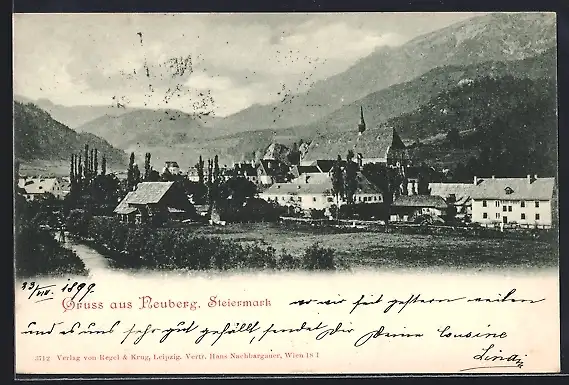 23/VIII. 1899.
Gruss aus Neuberg, Steiermark
wo wir seit gestern weilen
und es uns sehr gut gefällt, sendet dir
Deine Cousine
Lina
3512 Verlag von Regel & Krug, Leipzig. Vertr. Hans Nachbargauer, Wien 18 I